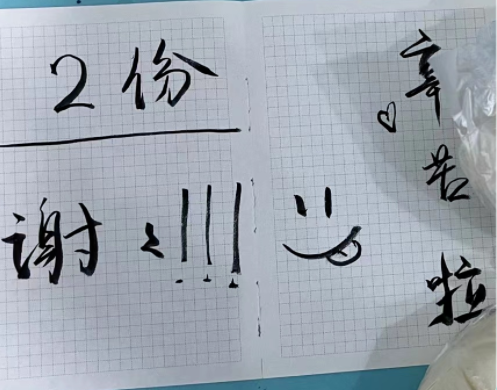 2份
谢々!!!
辛苦啦